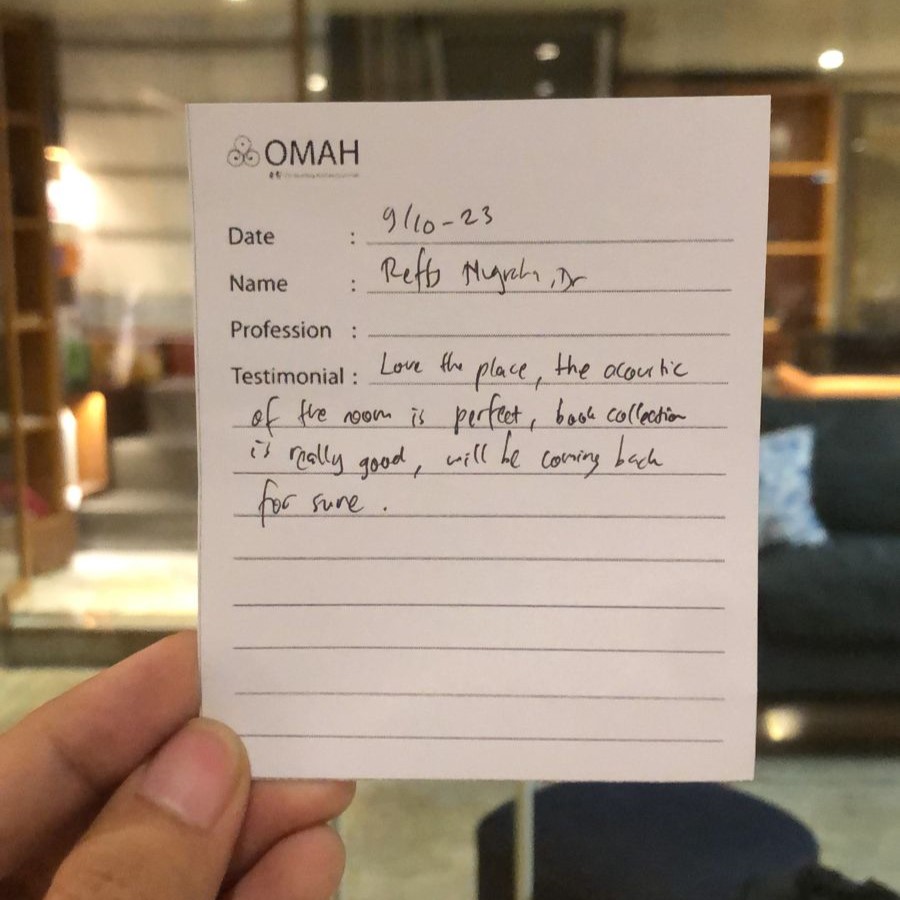 OMAH
Date : 9/10-23
Name : Reffo Nugraha, Dr
Profession :
Testimonial : Love the place, the acoustic
of the room is perfect, book collection
is really good, will be coming back
for sure.